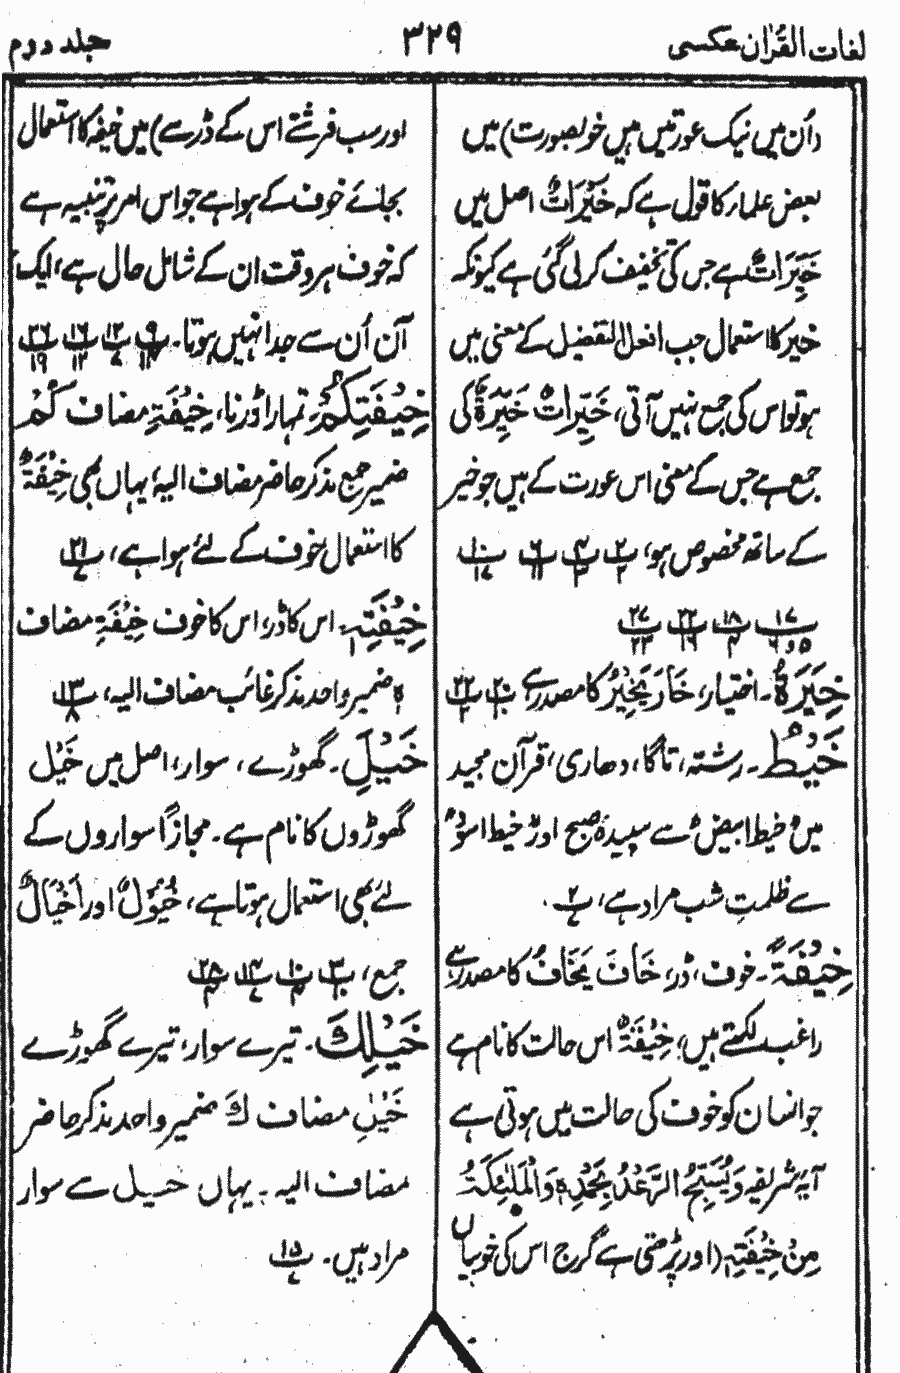 لغات القرآن عکسی
۳۲۹
جلد دوم
(اُن میں نیک عورتیں ہیں خوبصورت) میں
بعض علماء کا قول ہے کہ خَیْرَاتٌ اصل میں
خَیِّرَاتٌ ہے جس کی تخفیف کر لی گئی ہے کیونکہ
خیر کا استعمال جب افعل التفضیل کے معنی میں
ہو تو اس کی جمع نہیں آتی، خَیِّرَاتٌ خَیِّرَةٌ کی
جمع ہے جس کے معنی اس عورت کے ہیں جو خیر
کے ساتھ مخصوص ہو،
خِیَرَةُ ۔ اختیار، خَارَ یَخِیْرُ کا مصدر ہے
خَیْطُ ۔ رشتہ، تاگا، دھاری، قرآن مجید
میں خیط ابیض سے سپیدۂ صبح اور خیط اسود
سے ظلمتِ شب مراد ہے،
خِیْفَةً ۔ خوف، ڈر، خَافَ یَخَافُ کا مصدر ہے
راغب لکھتے ہیں، خِیْفَةٌ اس حالت کا نام ہے
جو انسان کو خوف کی حالت میں ہوتی ہے
آیۂ شریفہ وَیُسَبِّحُ الرَّعْدُ بِحَمْدِهٖ وَالْمَلٰٓئِكَةُ
مِنْ خِیْفَتِهٖ (اور پڑھتی ہے گرج اس کی خوبیاں
اور سب فرشتے اس کے ڈر سے) میں خیفہ کا استعمال
بجائے خوف کے ہوا ہے جو اس امر پر تنبیہ ہے
کہ خوف ہر وقت ان کے شامل حال ہے، ایک
آن اُن سے جدا نہیں ہوتا۔
خِیْفَتِكُمْ ۔ تمہارا ڈرنا، خِیْفَةِ مضاف كُمْ
ضمیر جمع مذکر حاضر مضاف الیہ، یہاں بھی خِیْفَةٌ
کا استعمال خوف کے لئے ہوا ہے،
خِیْفَتِهٖ ۔ اس کا ڈر، اس کا خوف خِیْفَةِ مضاف
ہٖ ضمیر واحد مذکر غائب مضاف الیہ،
خَیْلِ ۔ گھوڑے ، سوار، اصل میں خَیْلُ
گھوڑوں کا نام ہے۔ مجازًا سواروں کے
لئے بھی استعمال ہوتا ہے، خُیُوْلٌ اور اَخْیَالٌ
جمع،
خَیْلِكَ ۔ تیرے سوار، تیرے گھوڑے
خَیْلِ مضاف كَ ضمیر واحد مذکر حاضر
مضاف الیہ ۔ یہاں خیل سے سوار
مراد ہیں۔